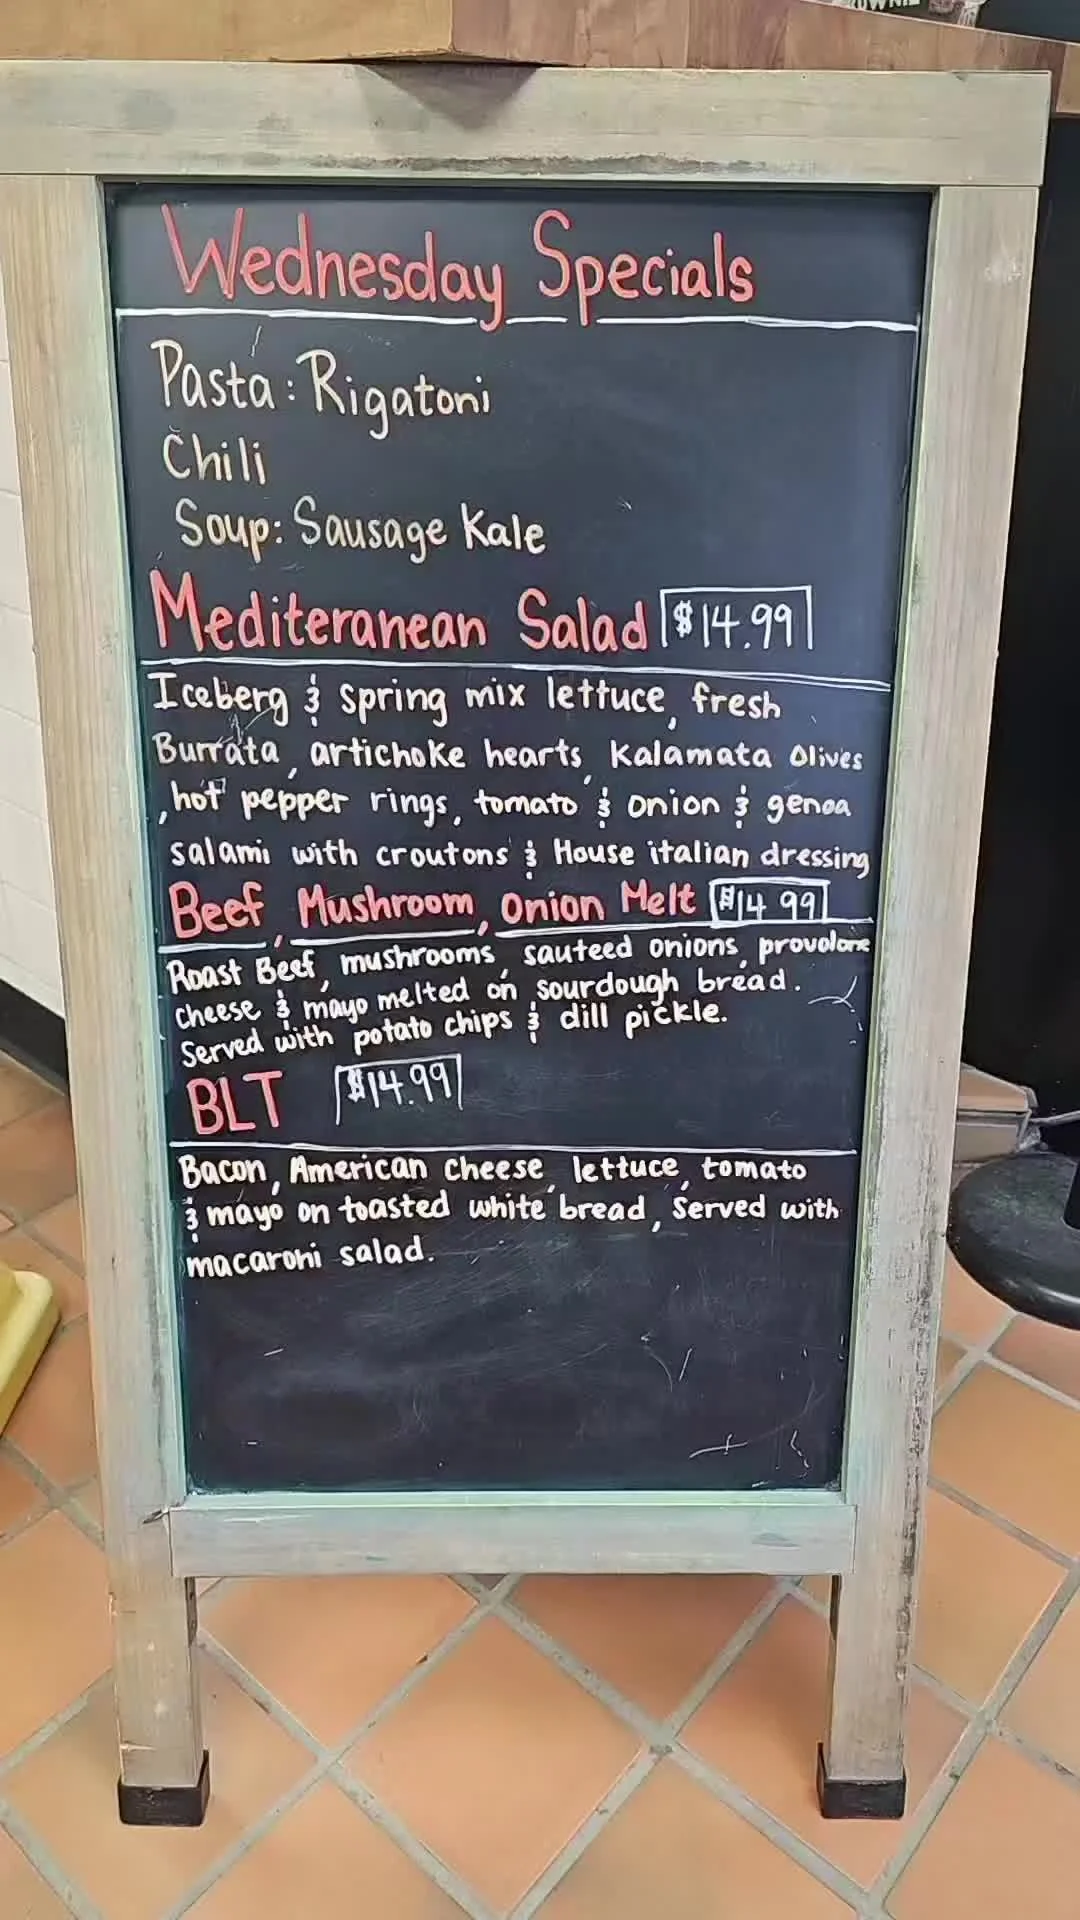 Wednesday Specials
Pasta: Rigatoni
Chili
Soup: Sausage Kale
Mediteranean Salad $14.99
Iceberg & spring mix lettuce, fresh
Burrata, artichoke hearts, Kalamata Olives
, hot pepper rings, tomato & onion & genoa
salami with croutons & House italian dressing
Beef, Mushroom, Onion Melt $14.99
Roast Beef, mushrooms, sauteed onions, provolone
cheese & mayo melted on sourdough bread.
Served with potato chips & dill pickle.
BLT $14.99
Bacon, American cheese, lettuce, tomato
& mayo on toasted white bread, Served with
macaroni salad.